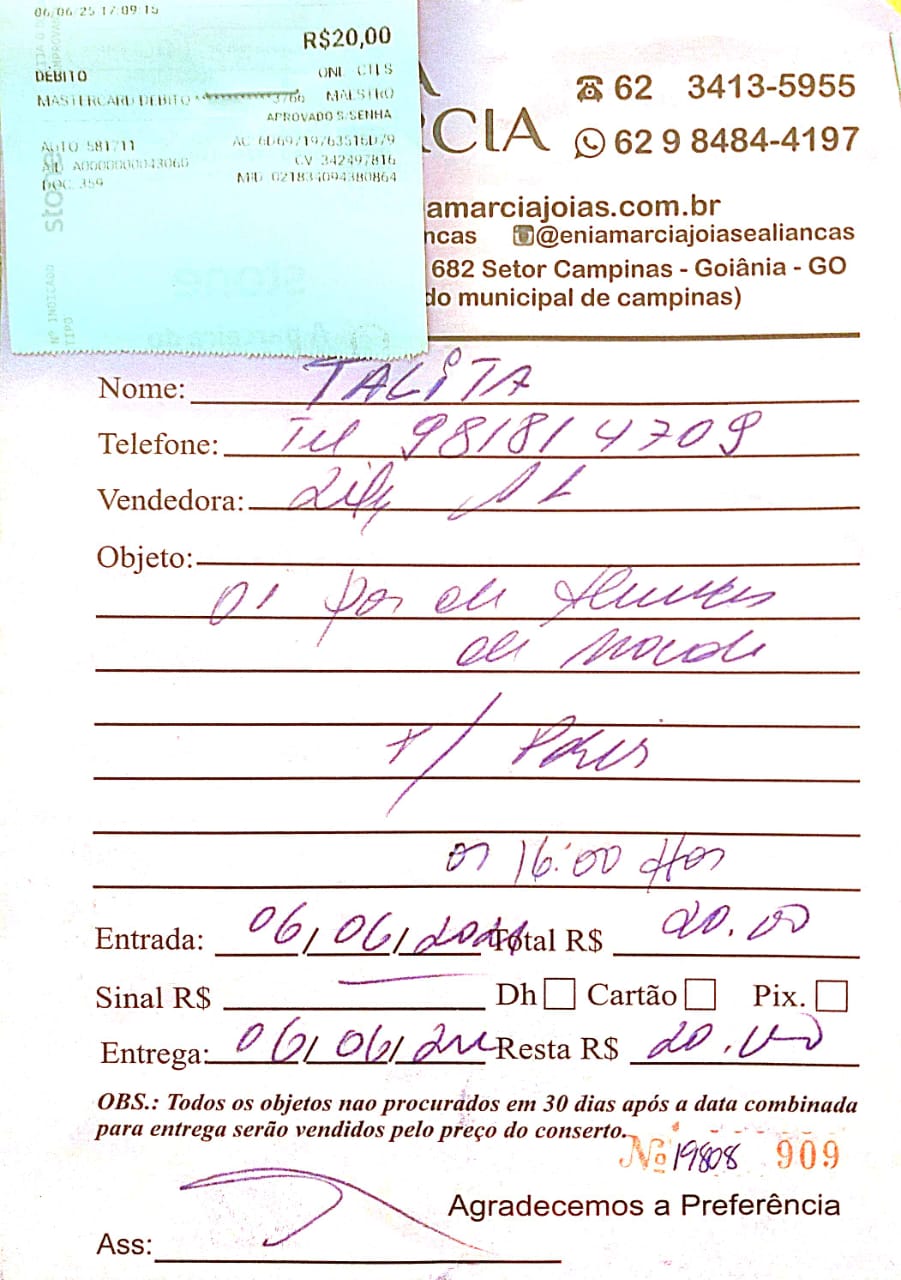 06/06/25 17:09:15
R$20,00
DÉBITO
ONL CTLS
MASTERCARD DEBITO 3766 MAESTRO
APROVADO S/SENHA
AUTO 581711
AID A0000000043060
CV 342497816
DOC 359
stone
RCIA
62 3413-5955
62 9 8484-4197
amarciajoias.com.br
ncas @eniamarciajoiasealiancas
682 Setor Campinas - Goiânia - GO
do municipal de campinas)
Nome: TALITA
Telefone: Tel 981814709
Vendedora:
Objeto:
01 Par de
de
16:00 Hors
Entrada: 06/06/2025 Total R$ 20.00
Sinal R$ Dh Cartão Pix.
Entrega: 06/06/ Resta R$ 20.00
OBS.: Todos os objetos nao procurados em 30 dias após a data combinada
para entrega serão vendidos pelo preço do conserto.
Nº 19808 909
Agradecemos a Preferência
Ass: